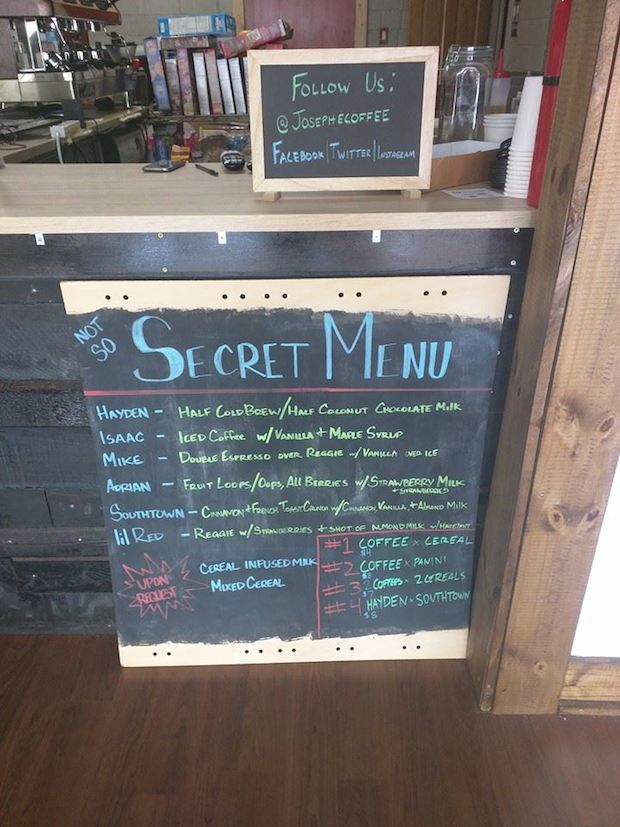 FOLLOW US:
@JOSEPHECOFFEE
FACEBOOK | TWITTER | INSTAGRAM
NOT SO
SECRET MENU
HAYDEN - HALF COLD BREW/HALF COCONUT CHOCOLATE MILK
ISAAC - ICED COFFEE W/ VANILLA + MAPLE SYRUP
MIKE - DOUBLE ESPRESSO OVER REGGIE W/ VANILLA OVER ICE
ADRIAN - FRUIT LOOPS/OOPS, ALL BERRIES W/ STRAWBERRY MILK
+ STRAWBERRIES
SOUTHTOWN - CINNAMON + FRENCH TOAST CRUNCH W/ CINNAMON, VANILLA, + ALMOND MILK
lil RED - REGGIE W/ STRAWBERRIES + SHOT OF ALMOND MILK W/ HAZELNUT
UPON REQUEST
CEREAL INFUSED MILK
MIXED CEREAL
#1 COFFEE × CEREAL
$4
#2 COFFEE × PANINI
#3 2 COFFEES × 2 CEREALS
$7
#4 HAYDEN × SOUTHTOWN
$8